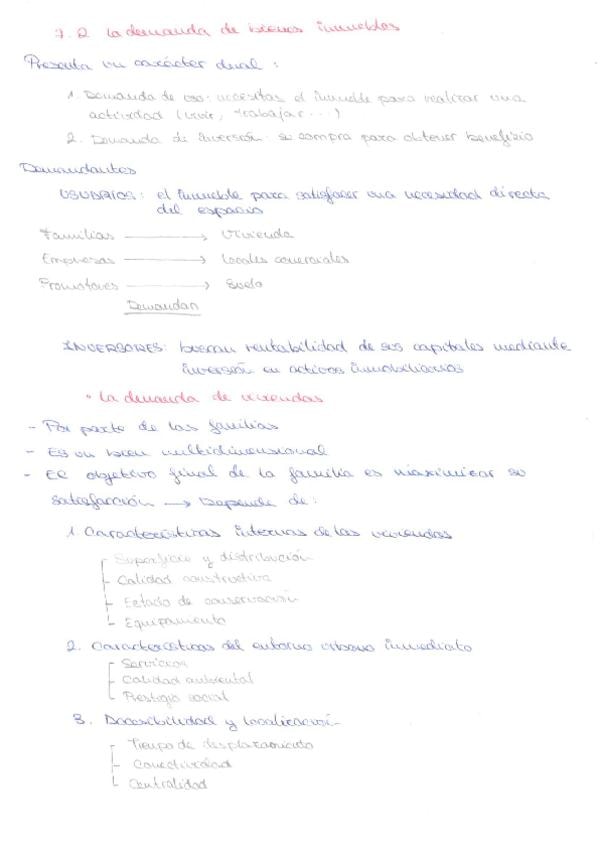 7.2 La demanda de bienes inmuebles
Presenta un carácter dual :
1. Demanda de uso: necesitas el inmueble para realizar una
actividad (vivir, trabajar...)
2. Demanda de inversión: se compra para obtener beneficio
Demandantes
USUARIOS: el inmueble para satisfacer una necesidad directa
del espacio
Familias → Vivienda
Empresas → Locales comerciales
Promotores → Suelo
Demandan
INVERSORES: buscan rentabilidad de sus capitales mediante
inversión en activos inmobiliarios
• La demanda de viviendas
- Por parte de las familias
- Es un bien multidimensional
- El objetivo final de la familia es maximizar su
satisfacción → Depende de:
1. Características internas de las viviendas
Superficie y distribución
- Calidad constructiva
- Estado de conservación
- Equipamiento
2. Características del entorno urbano inmediato
Servicios
- Calidad ambiental
Prestigio social
3. Accesibilidad y localización
Tiempo de desplazamiento
- Conectividad
Centralidad